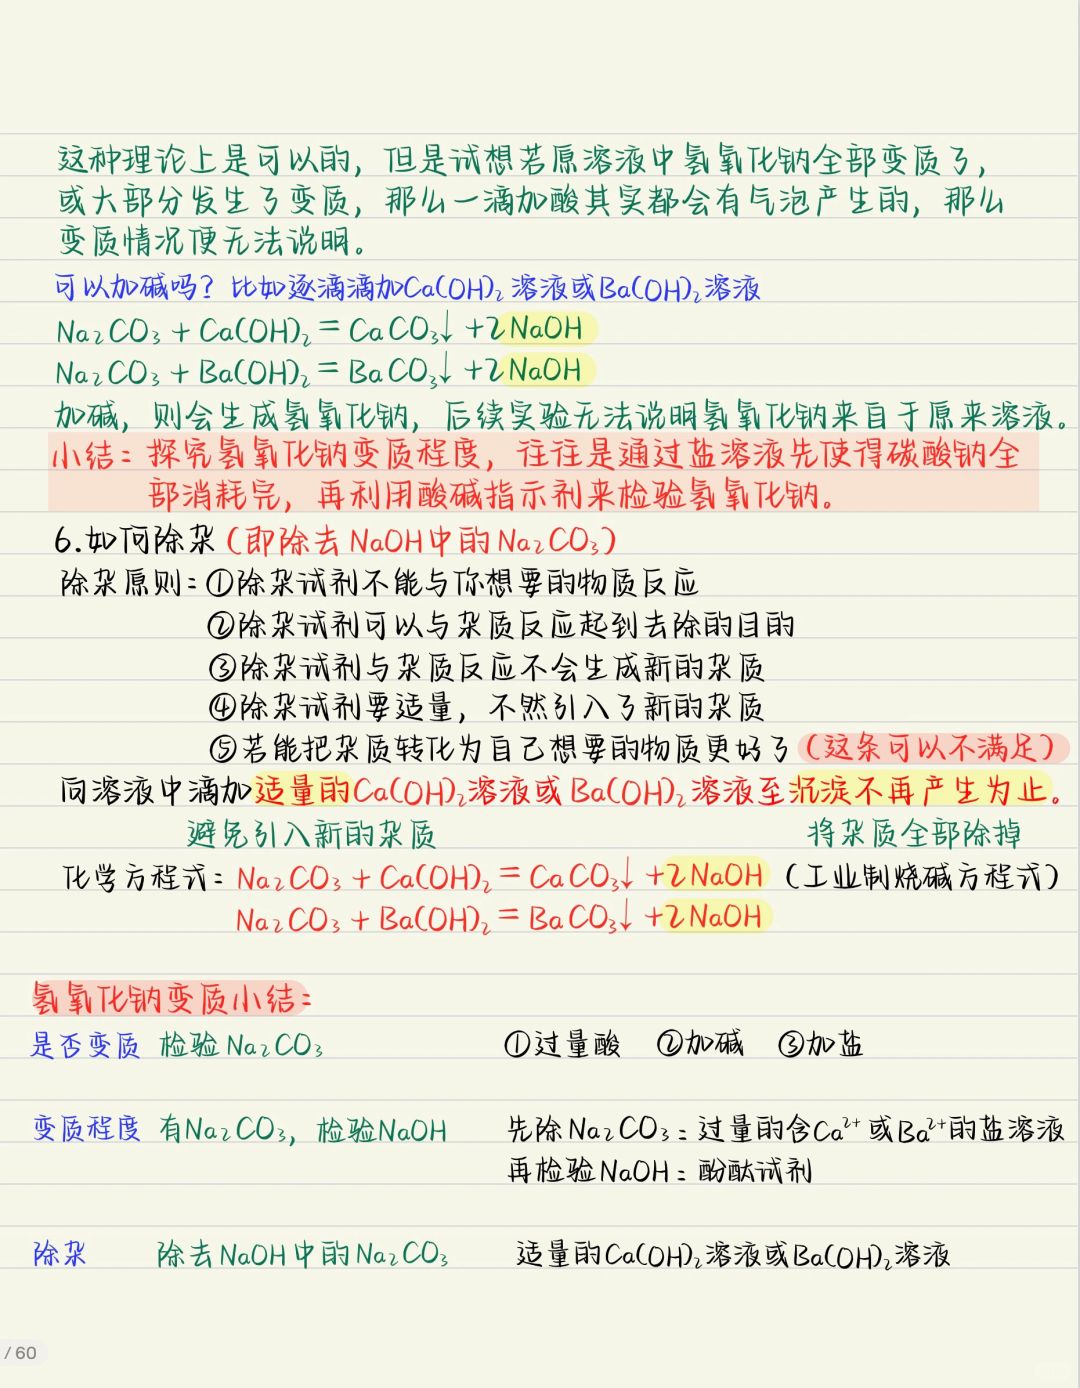 这种理论上是可以的，但是试想若原溶液中氢氧化钠全部变质了，
或大部分发生了变质，那么一滴加酸其实都会有气泡产生的，那么
变质情况便无法说明。
可以加碱吗？比如逐滴滴加Ca(OH)₂溶液或Ba(OH)₂溶液
Na₂CO₃ + Ca(OH)₂ = CaCO₃↓ +2NaOH
Na₂CO₃ + Ba(OH)₂ = BaCO₃↓ +2NaOH
加碱，则会生成氢氧化钠，后续实验无法说明氢氧化钠来自于原来溶液。
小结：探究氢氧化钠变质程度，往往是通过盐溶液先使得碳酸钠全
部消耗完，再利用酸碱指示剂来检验氢氧化钠。
6.如何除杂（即除去NaOH中的Na₂CO₃）
除杂原则：①除杂试剂不能与你想要的物质反应
②除杂试剂可以与杂质反应起到去除的目的
③除杂试剂与杂质反应不会生成新的杂质
④除杂试剂要适量，不然引入了新的杂质
⑤若能把杂质转化为自己想要的物质更好了（这条可以不满足）
向溶液中滴加适量的Ca(OH)₂溶液或Ba(OH)₂溶液至沉淀不再产生为止。
避免引入新的杂质 将杂质全部除掉
化学方程式：Na₂CO₃ + Ca(OH)₂ = CaCO₃↓ +2NaOH （工业制烧碱方程式）
Na₂CO₃ + Ba(OH)₂ = BaCO₃↓ +2NaOH
氢氧化钠变质小结：
是否变质 检验Na₂CO₃ ①过量酸 ②加碱 ③加盐
变质程度 有Na₂CO₃，检验NaOH 先除Na₂CO₃：过量的含Ca²⁺或Ba²⁺的盐溶液
再检验NaOH：酚酞试剂
除杂 除去NaOH中的Na₂CO₃ 适量的Ca(OH)₂溶液或Ba(OH)₂溶液
/ 60